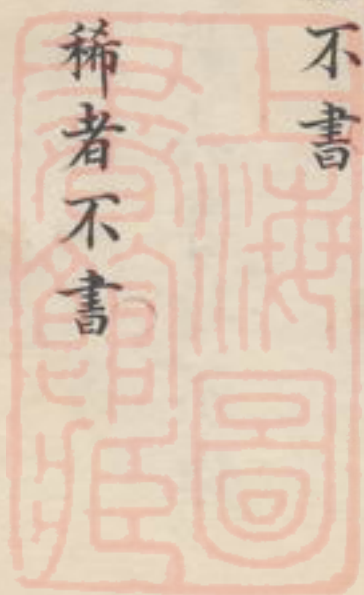 不書
稀者不書
上海圖
書館藏